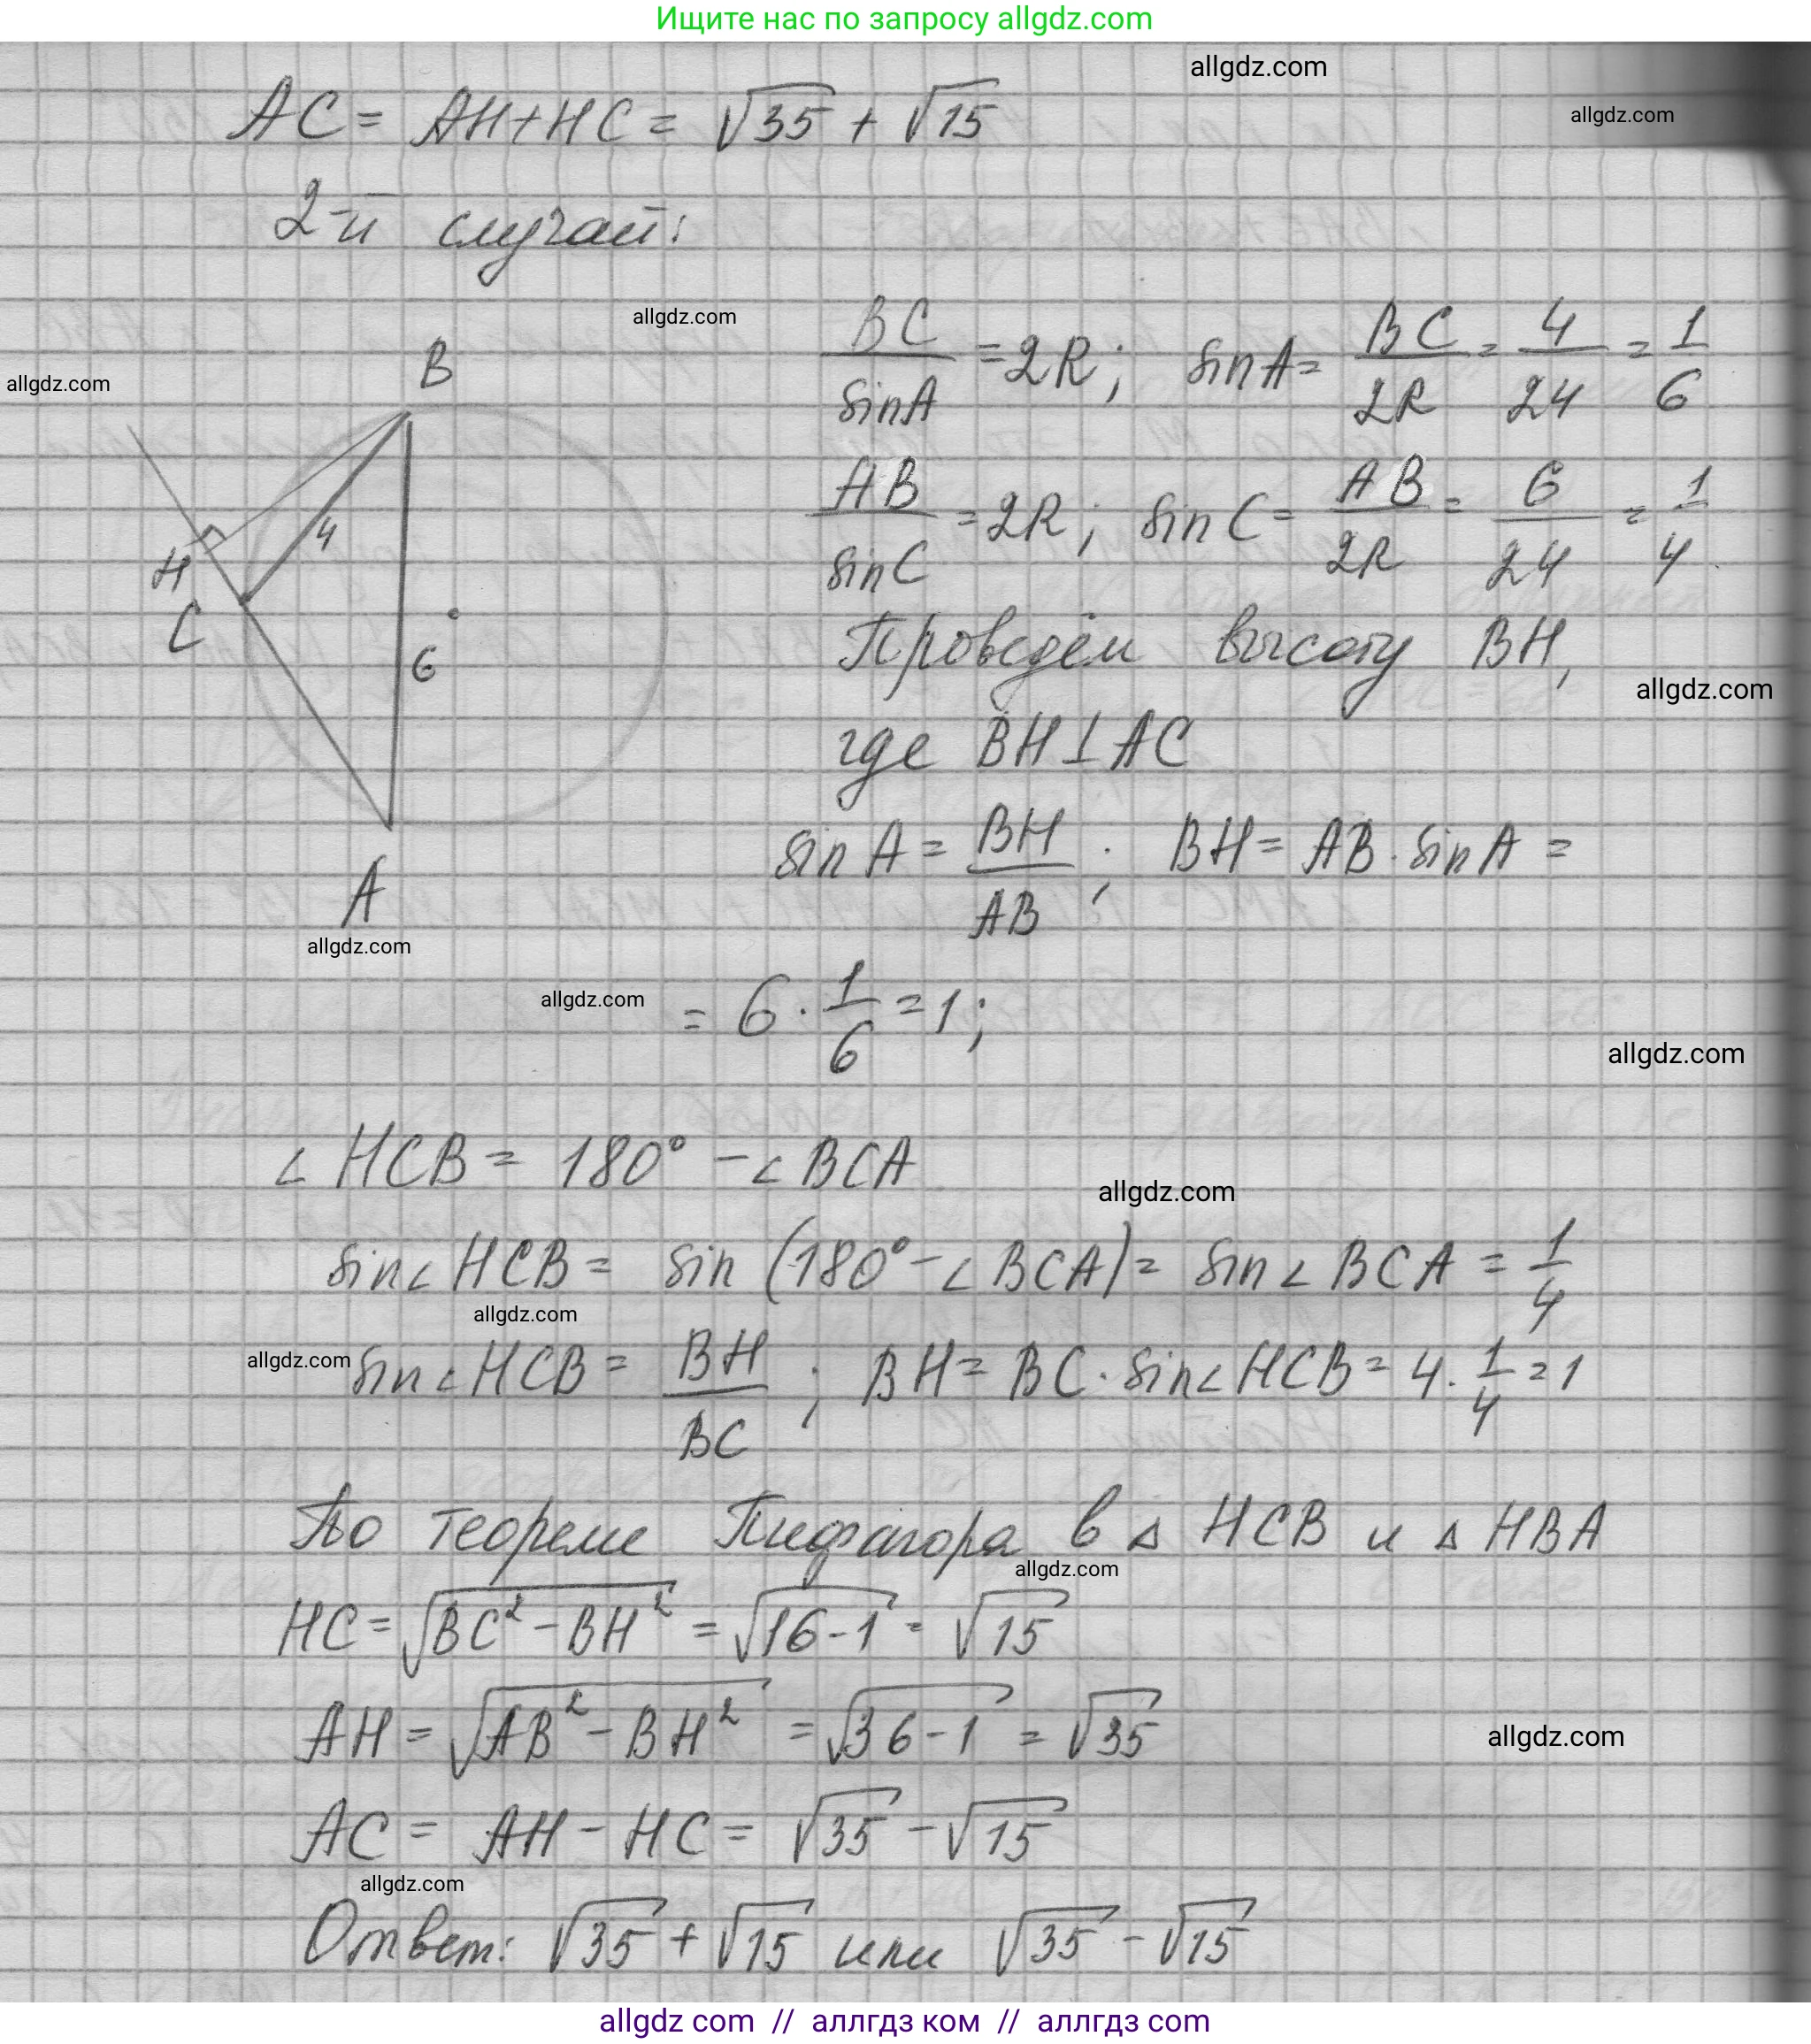 Ищите нас по запросу allgdz.com
allgdz.com
allgdz.com
AC = AH+HC = √35 + √15
2-й случай:
allgdz.com
BC/sinA = 2R; sinA = BC/2R = 4/24 = 1/6
allgdz.com
B
AB/sinC = 2R; sinC = AB/2R = 6/24 = 1/4
4
H
C
6
Проведём высоту BH,
allgdz.com
где BH⊥AC
sinA = BH/AB; BH = AB · sinA =
A
allgdz.com
allgdz.com
= 6 · 1/6 = 1;
allgdz.com
∠HCB = 180° - ∠BCA
allgdz.com
sin∠HCB = sin(180° - ∠BCA) = sin∠BCA = 1/4
allgdz.com
allgdz.com
sin∠HCB = BH/BC; BH = BC · sin∠HCB = 4 · 1/4 = 1
По теореме Пифагора в △HCB и △HBA
allgdz.com
HC = √(BC² - BH²) = √(16-1) = √15
AH = √(AB² - BH²) = √(36-1) = √35
allgdz.com
AC = AH - HC = √35 - √15
allgdz.com
Ответ: √35 + √15 или √35 - √15
allgdz com // аллгдз ком // аллгдз com